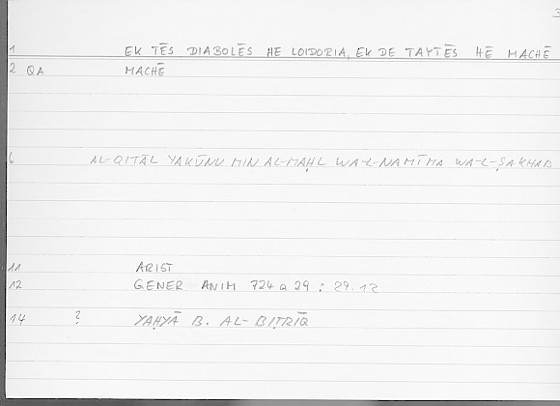 3
1 EK TĒS DIABOLĒS HE LOIDORIA, EK DE TAYTĒS HĒ MACHĒ
2 QA MACHĒ
6 AL-QITĀL YAKŪNU MIN AL-MAḤL WA-L-NAMĪMA WA-L-ṢAKHAB
11 ARIST
12 GENER ANIM 724 a 29 : 29.12
14 ? YAḤYĀ B. AL-BIṬRĪQ